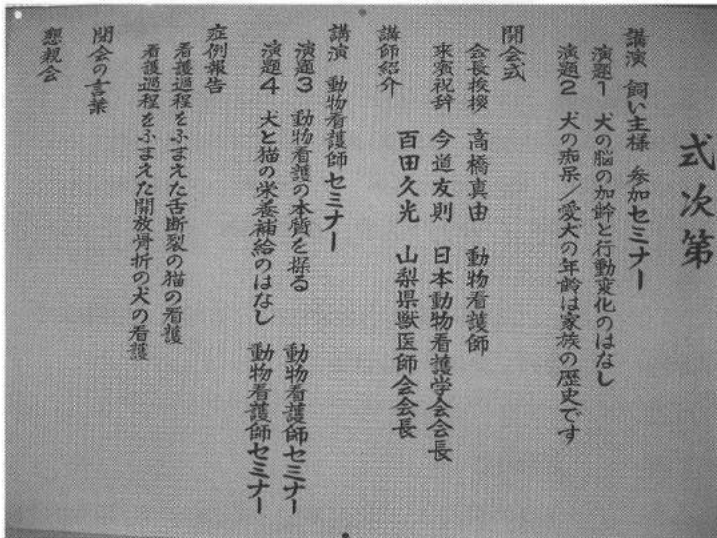 式次第
講演 飼い主様 参加セミナー
演題1 犬の脳の加齢と行動変化のはなし
演題2 犬の痴呆／愛犬の年齢は家族の歴史です
開会式
会長挨拶 高橋真由 動物看護師
来賓祝辞 今道友則 日本動物看護学会会長
百田久光 山梨県獣医師会会長
講師紹介
講演 動物看護師セミナー
演題3 動物看護の本質を探る 動物看護師セミナー
演題4 犬と猫の栄養補給のはなし 動物看護師セミナー
症例報告
看護過程をふまえた舌断裂の猫の看護
看護過程をふまえた開放骨折の犬の看護
閉会の言葉
懇親会